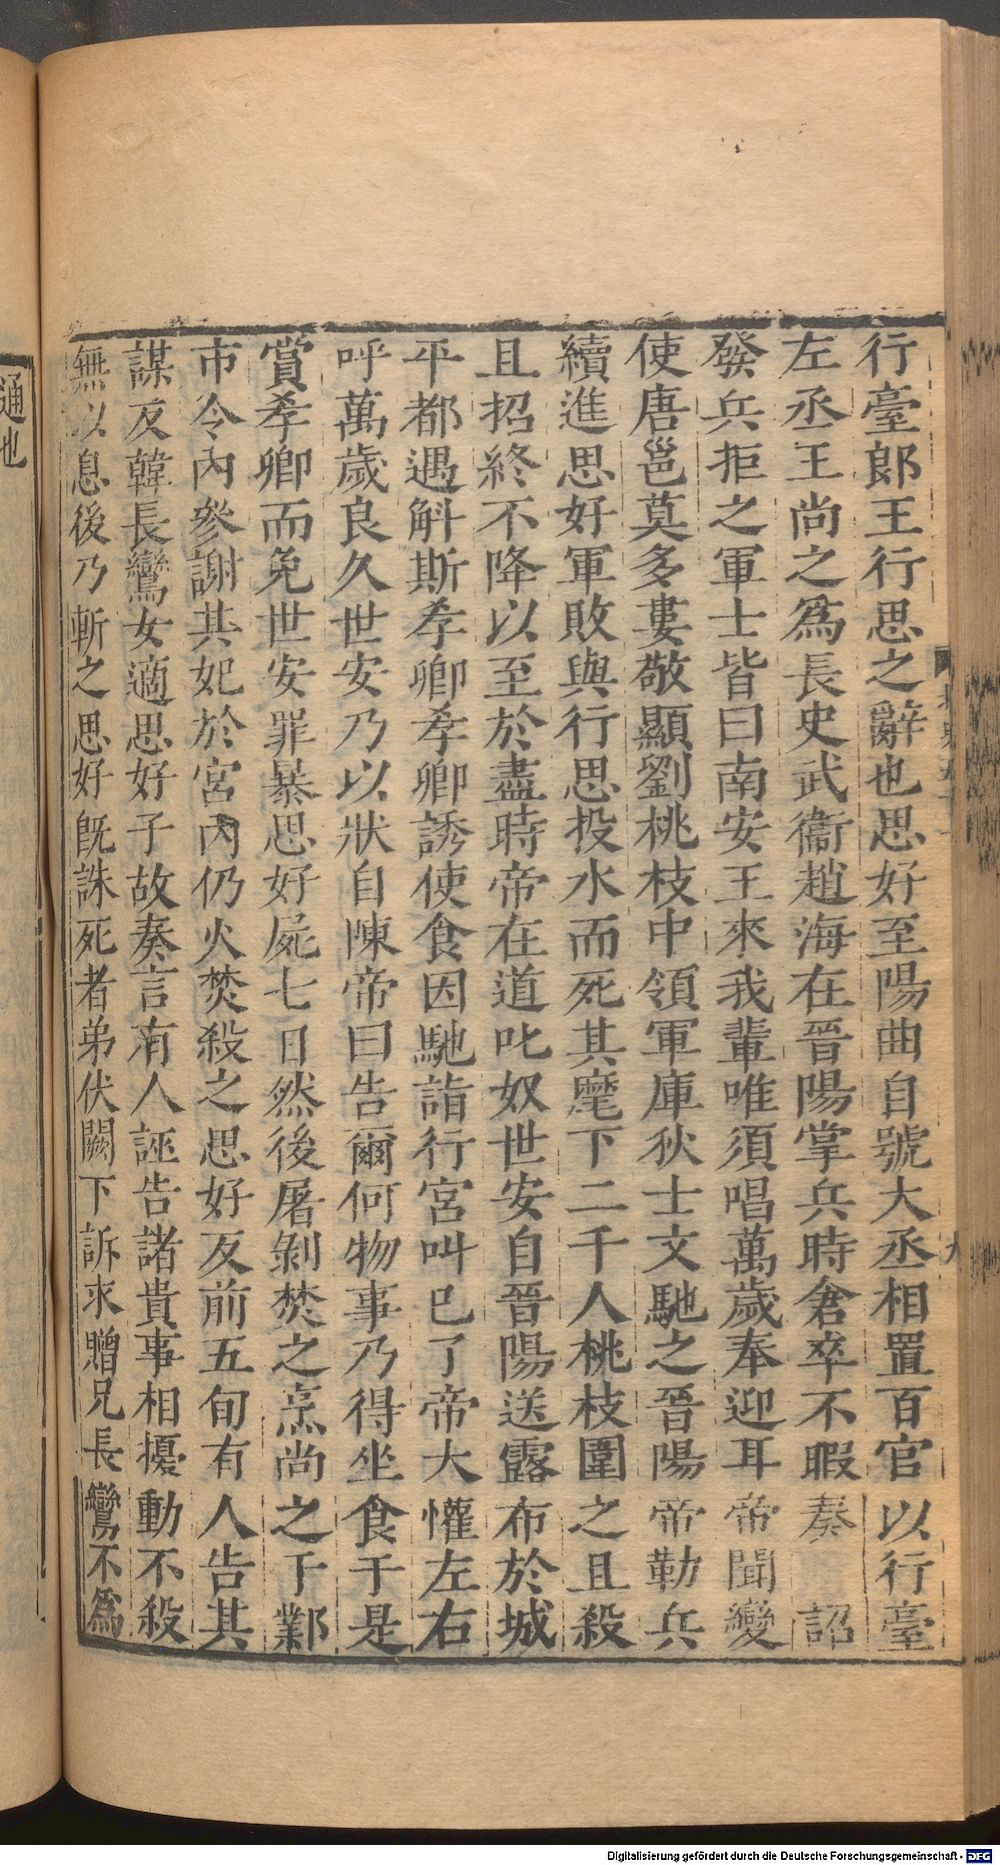 行臺郎王行思之辭也思好至陽曲自號大丞相置百官以行臺
左丞王尚之爲長史武衞趙海在晉陽掌兵時倉卒不暇奏詔
發兵拒之軍士皆曰南安王來我輩唯須唱萬歲奉迎耳帝聞變
使唐邕莫多婁敬顯劉桃枝中領軍庫狄士文馳之晉陽帝勒兵
續進思好軍敗與行思投水而死其麾下二千人桃枝圍之且殺
且招終不降以至於盡時帝在道叱奴世安自晉陽送露布於城
平都遇斛斯孝卿孝卿誘使食因馳詣行宮叫已了帝大懽左右
呼萬歲良久世安乃以狀自陳帝曰告爾何物事乃得坐食于是
賞孝卿而免世安罪暴思好屍七日然後屠剝焚之烹尚之于鄴
市令內參謝其妃於宮內仍火焚殺之思好反前五旬有人告其
謀反韓長鸞女適思好子故奏言有人誣告諸貴事相擾動不殺
無以息後乃斬之思好旣誅死者弟伏闕下訴求贈兄長鸞不爲
通也
Digitalisierung gefördert durch die Deutsche Forschungsgemeinschaft - DFG